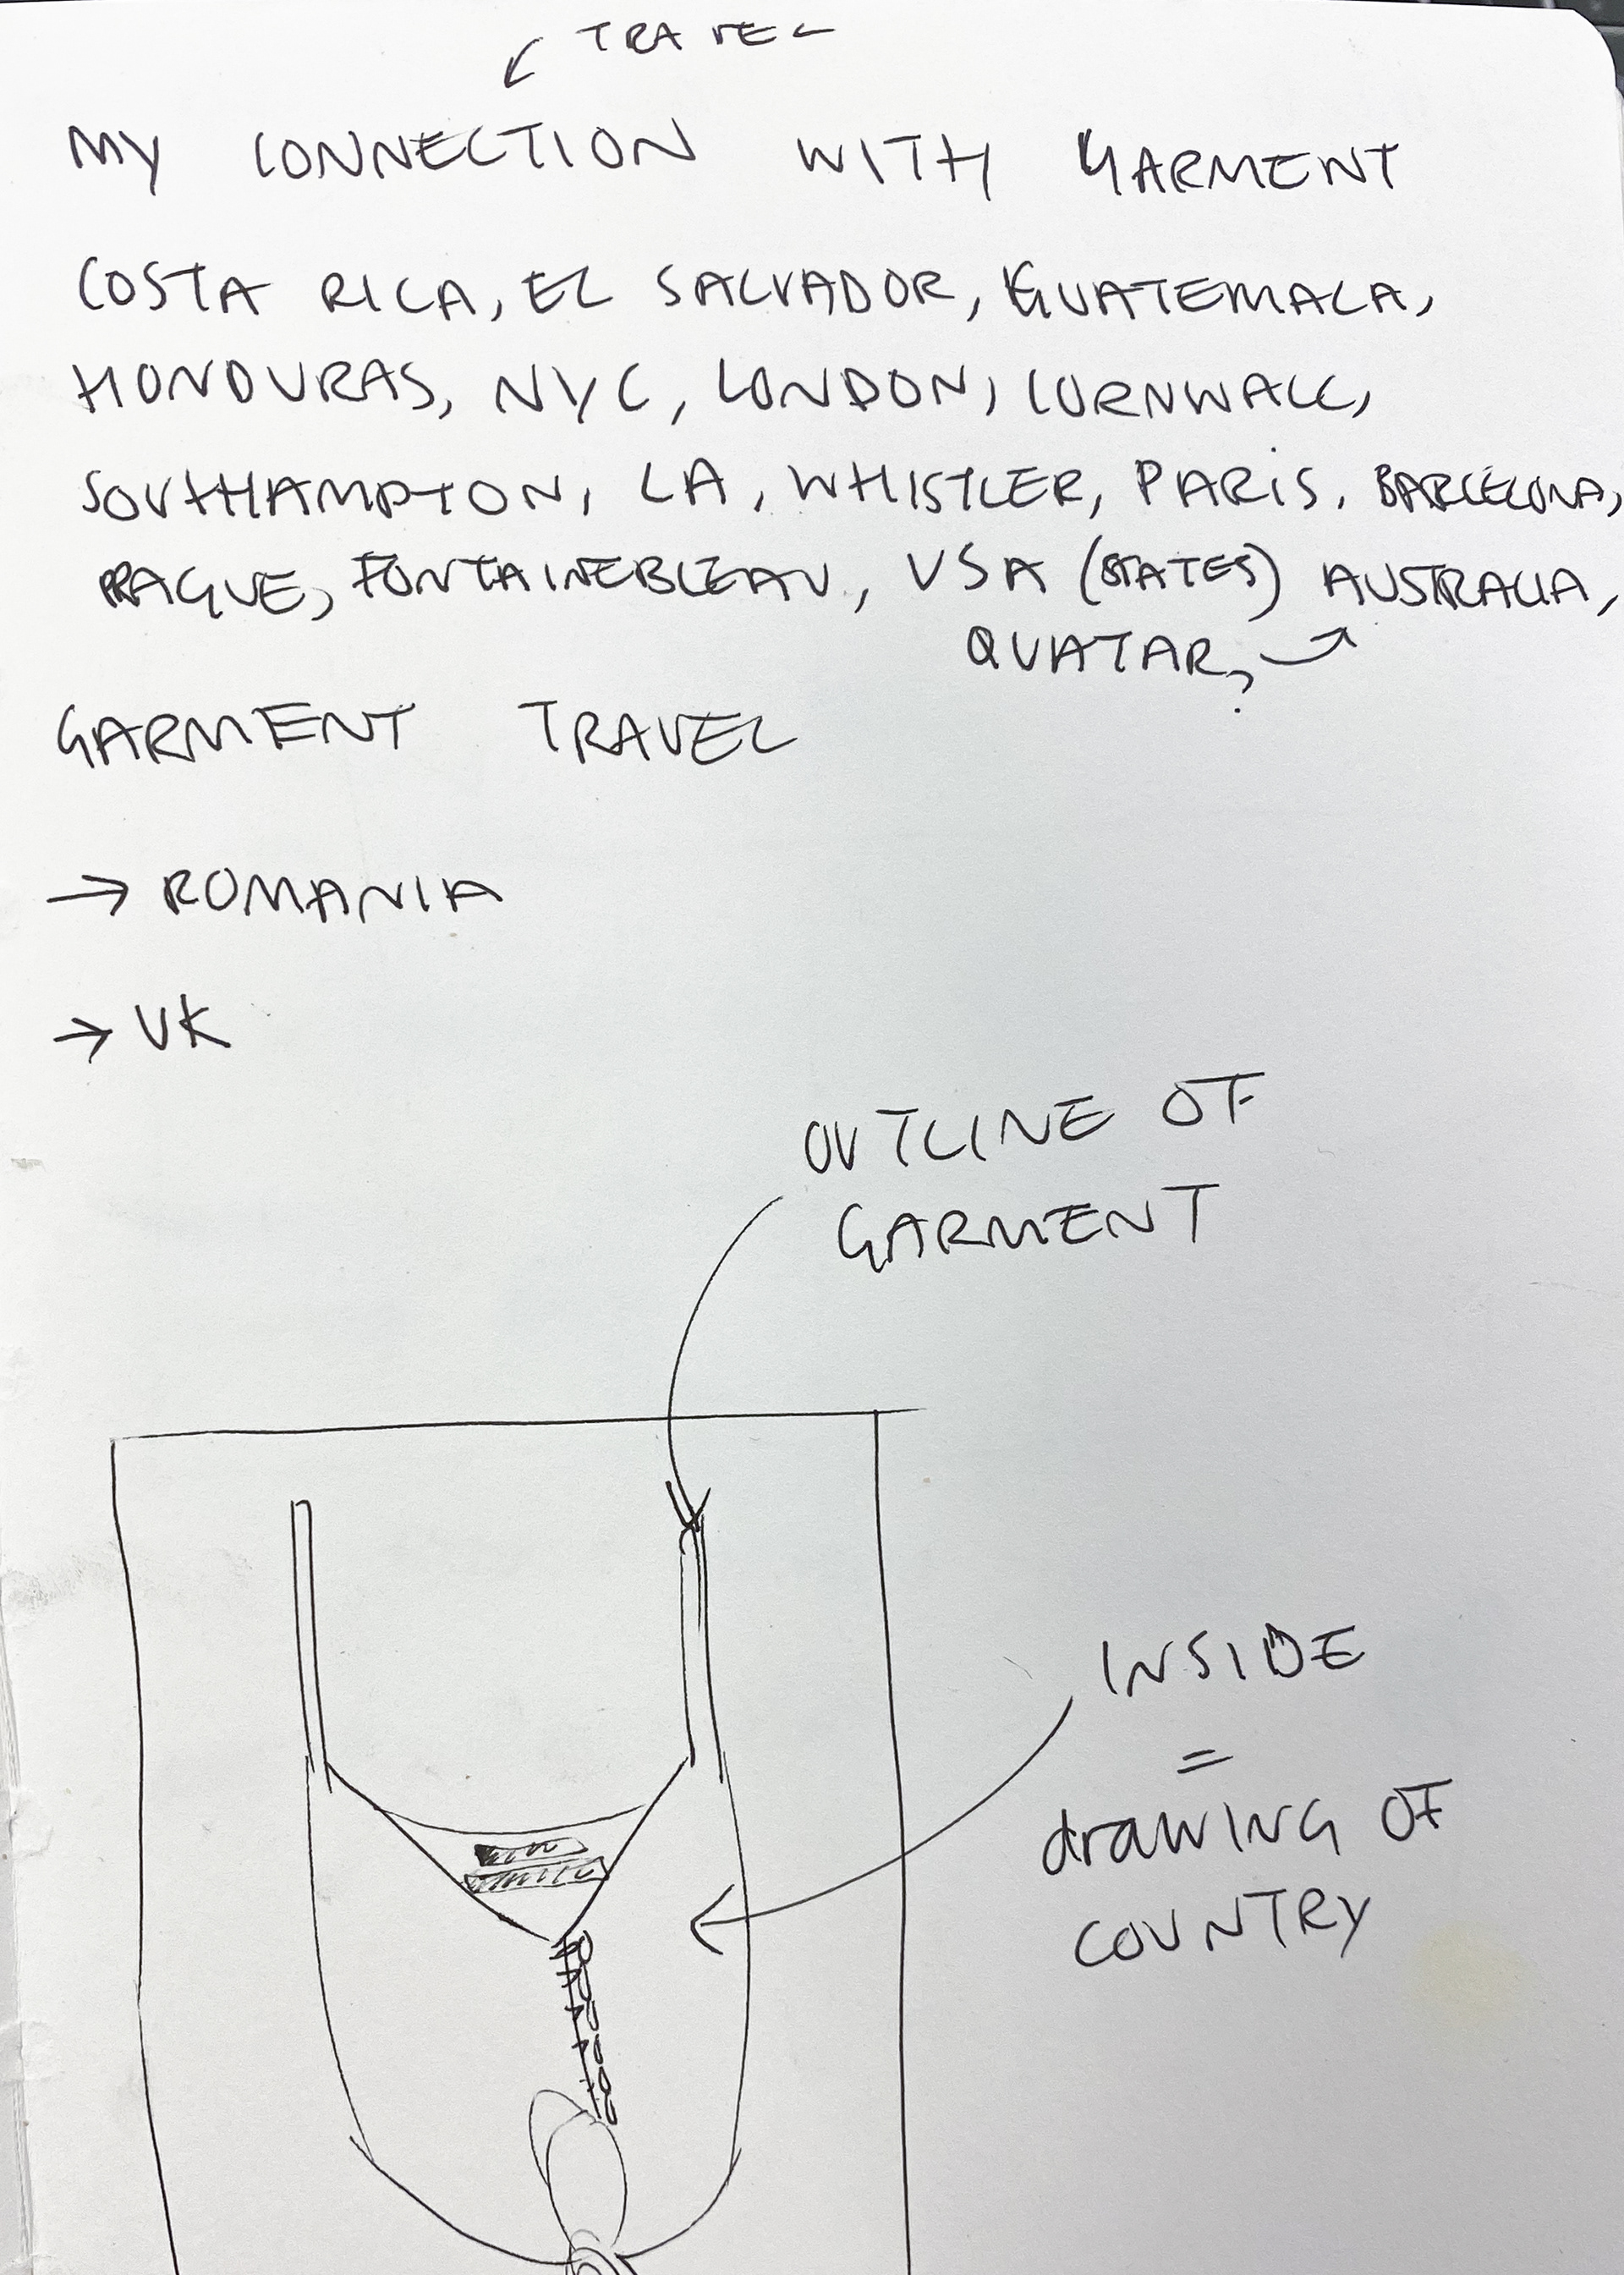 TRAVEL
MY CONNECTION WITH GARMENT
COSTA RICA, EL SALVADOR, GUATEMALA,
HONDURAS, NYC, LONDON, CORNWALL,
SOUTHAMPTON, LA, WHISTLER, PARIS, BARCELONA,
PRAGUE, FONTAINEBLEAU, USA (STATES) AUSTRALIA,
QUATAR,
GARMENT TRAVEL
→ ROMANIA
→ UK
OUTLINE OF
GARMENT
INSIDE
=
drawING OF
COUNTRY